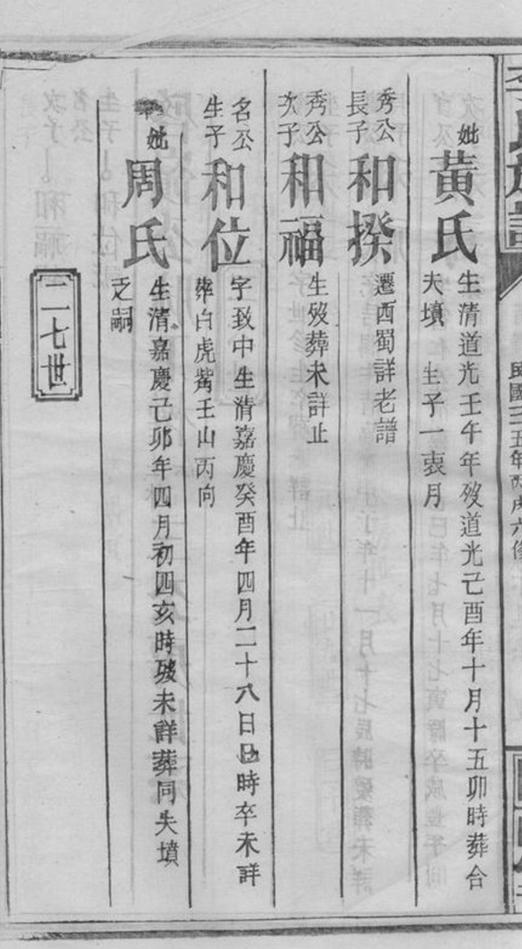 氏族譜
民國三五年丙戌六修
妣
黃氏
生清道光壬午年歿道光己酉年十月十五卯時葬合
夫墳 生子一衷月
秀公
長子
和揆
遷西蜀詳老譜
秀公
次子
和福
生歿葬未詳止
名公
生子
和位
字致中生清嘉慶癸酉年四月二十八日巳時卒未詳
葬白虎觜壬山丙向
妣
周氏
生清嘉慶己卯年四月初四亥時歿未詳葬同夫墳
乏嗣
二七世